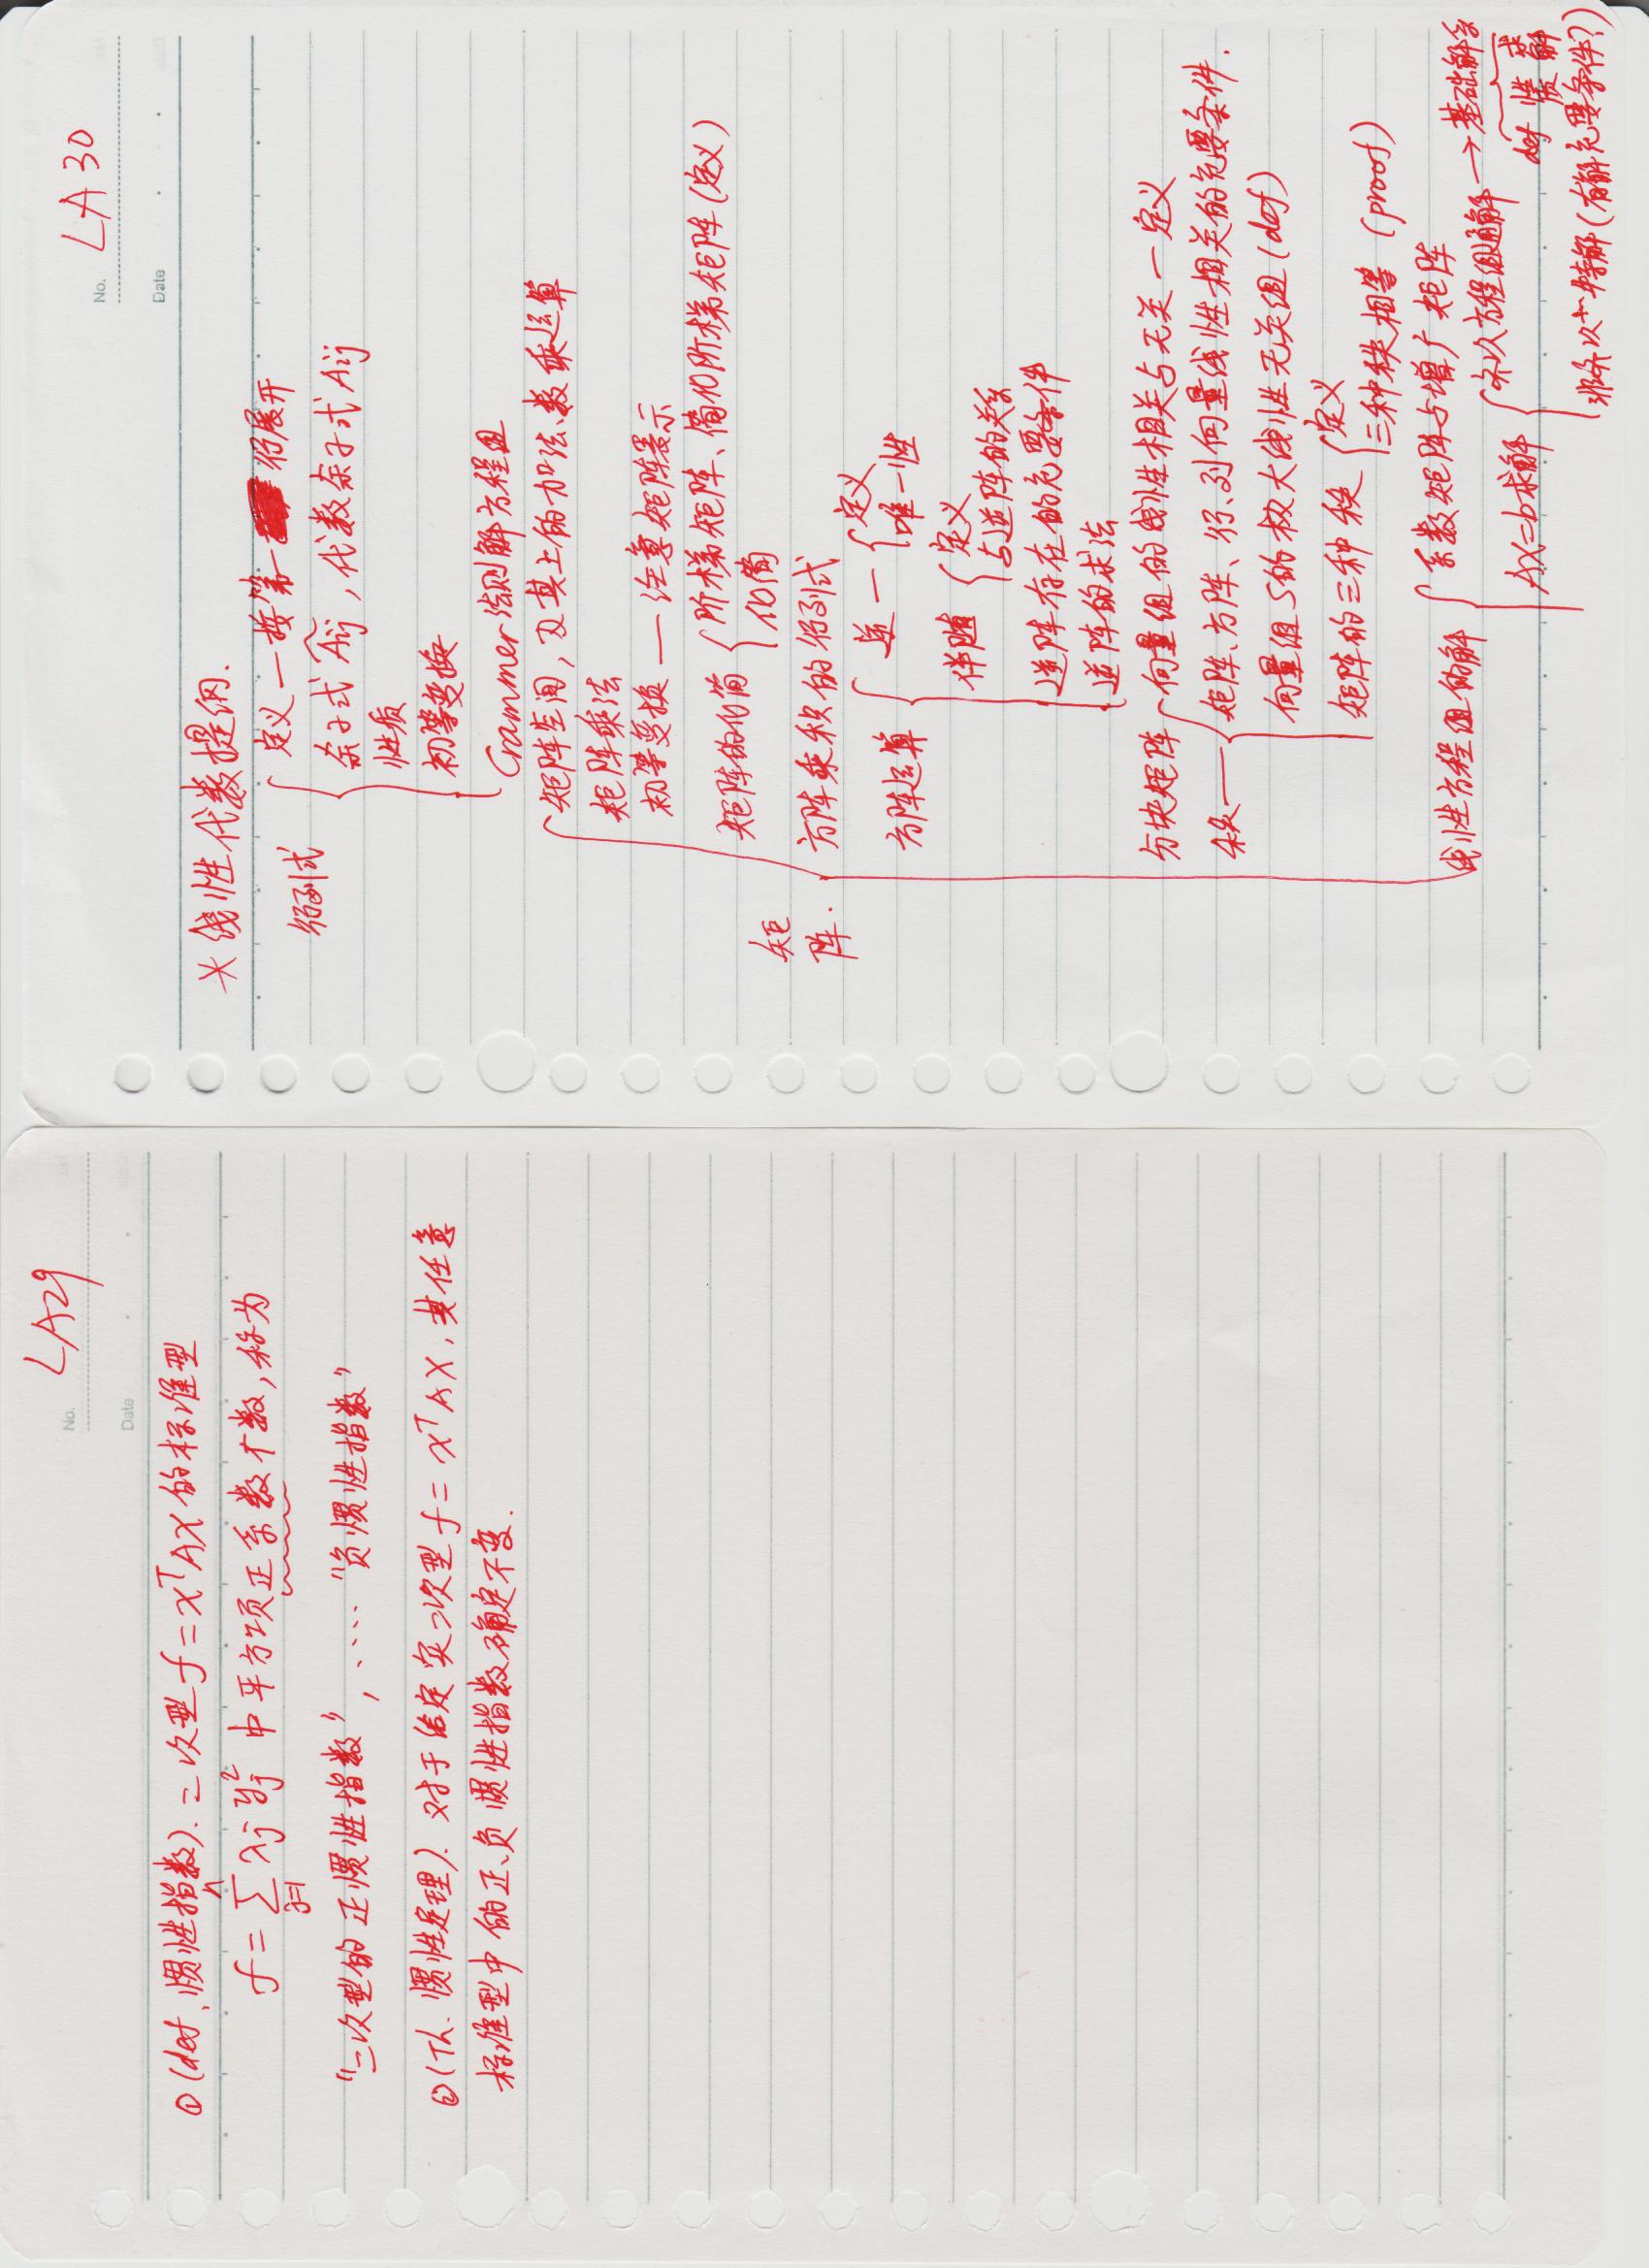 No. LA29
Date
①(def. 惯性指数). 二次型 f=xᵀAx 的标准型
f=∑ⁿⱼ₌₁ λⱼ yⱼ² 中平方项正系数个数, 称为
“二次型的正惯性指数”, ····“负惯性指数”
②(Th. 惯性定理). 对于给定实二次型 f=xᵀAx, 其任意
标准型中的正、负惯性指数确定不变.
No. LA30
Date
* 线性代数提纲.
行列式
定义 — 按第一行展开
余子式 Ãij, 代数余子式 Aij
性质
初等变换
Crammer法则解方程组
矩阵.
矩阵空间, 及其上的加法、数乘运算
矩阵乘法
初等变换 — 注意矩阵表示
矩阵的化简
阶梯矩阵、简化阶梯矩阵(定义)
化简
方阵乘积的行列式
方阵运算
逆 —
定义
唯一性
伴随
定义
与逆阵的关系
逆阵存在的充要条件
逆阵的求法
分块矩阵
秩 —
向量组的线性相关与无关 — 定义
矩阵、方阵、行、列向量线性相关的充要条件.
向量组S的极大线性无关组(def)
矩阵的三种秩
定义
三种秩相等 (proof)
线性方程组的解
系数矩阵与增广矩阵
Ax=b求解
齐次方程组通解 → 基础解系
def 性质 求解
非齐次~特解(有解充要条件?)